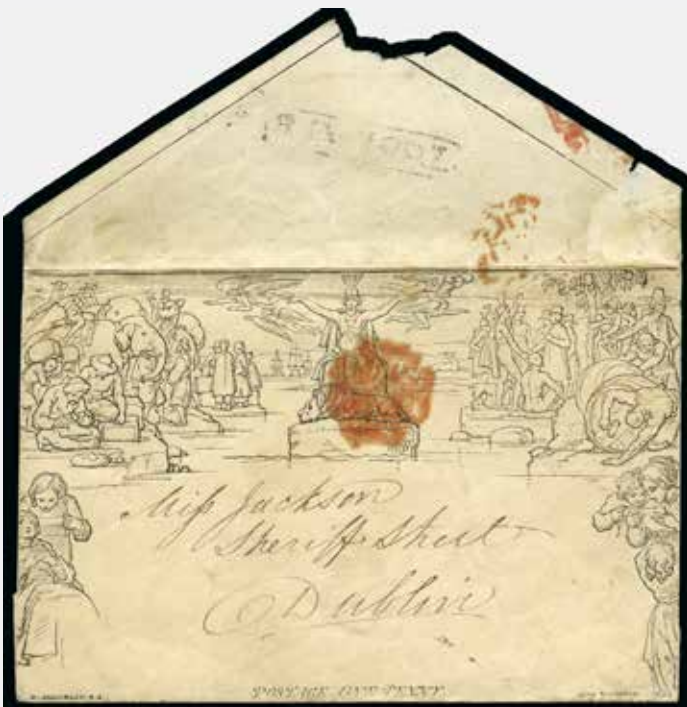 Miss Jackson
Sheriff Street
Dublin
POSTAGE ONE PENNY.